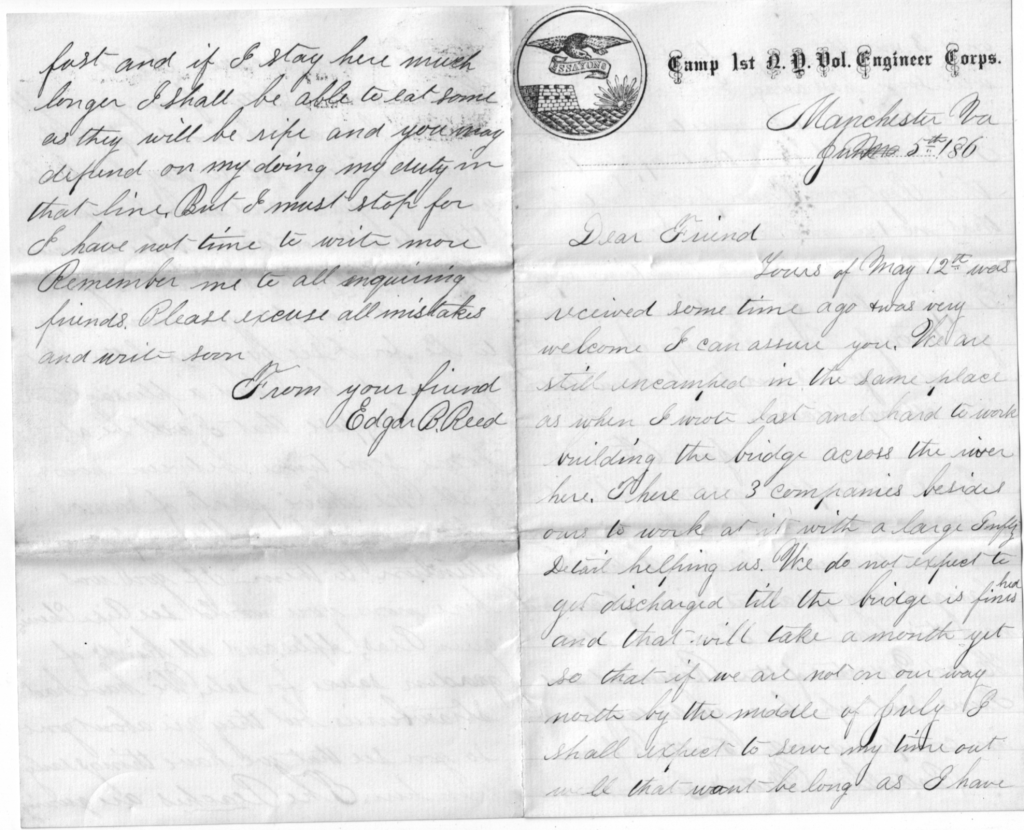 fast and if I stay here much
longer I shall be able to eat some
as they will be ripe and you may
depend on my doing my duty in
that line. But I must stop for
I have not time to write more
Remember me to all inquiring
friends. Please excuse all mistakes
and write soon
From your friend
Edgar B. Reed
ESSAYONS
Camp 1st N. Y. Vol. Engineer Corps.
Manchester Va
June 5th 186
Dear Friend
Yours of May 12th was
received some time ago & was very
welcome I can assure you. We are
still encamped in the same place
as when I wrote last and hard to work
building the bridge across the river
here. There are 3 companies besides
ours to work at it with a large
Detail helping us. We do not expect to
get discharged till the bridge is finished
and that will take a month yet
so that if we are not on our way
north by the middle of July I
shall expect to serve my time out
well that wont be long as I have